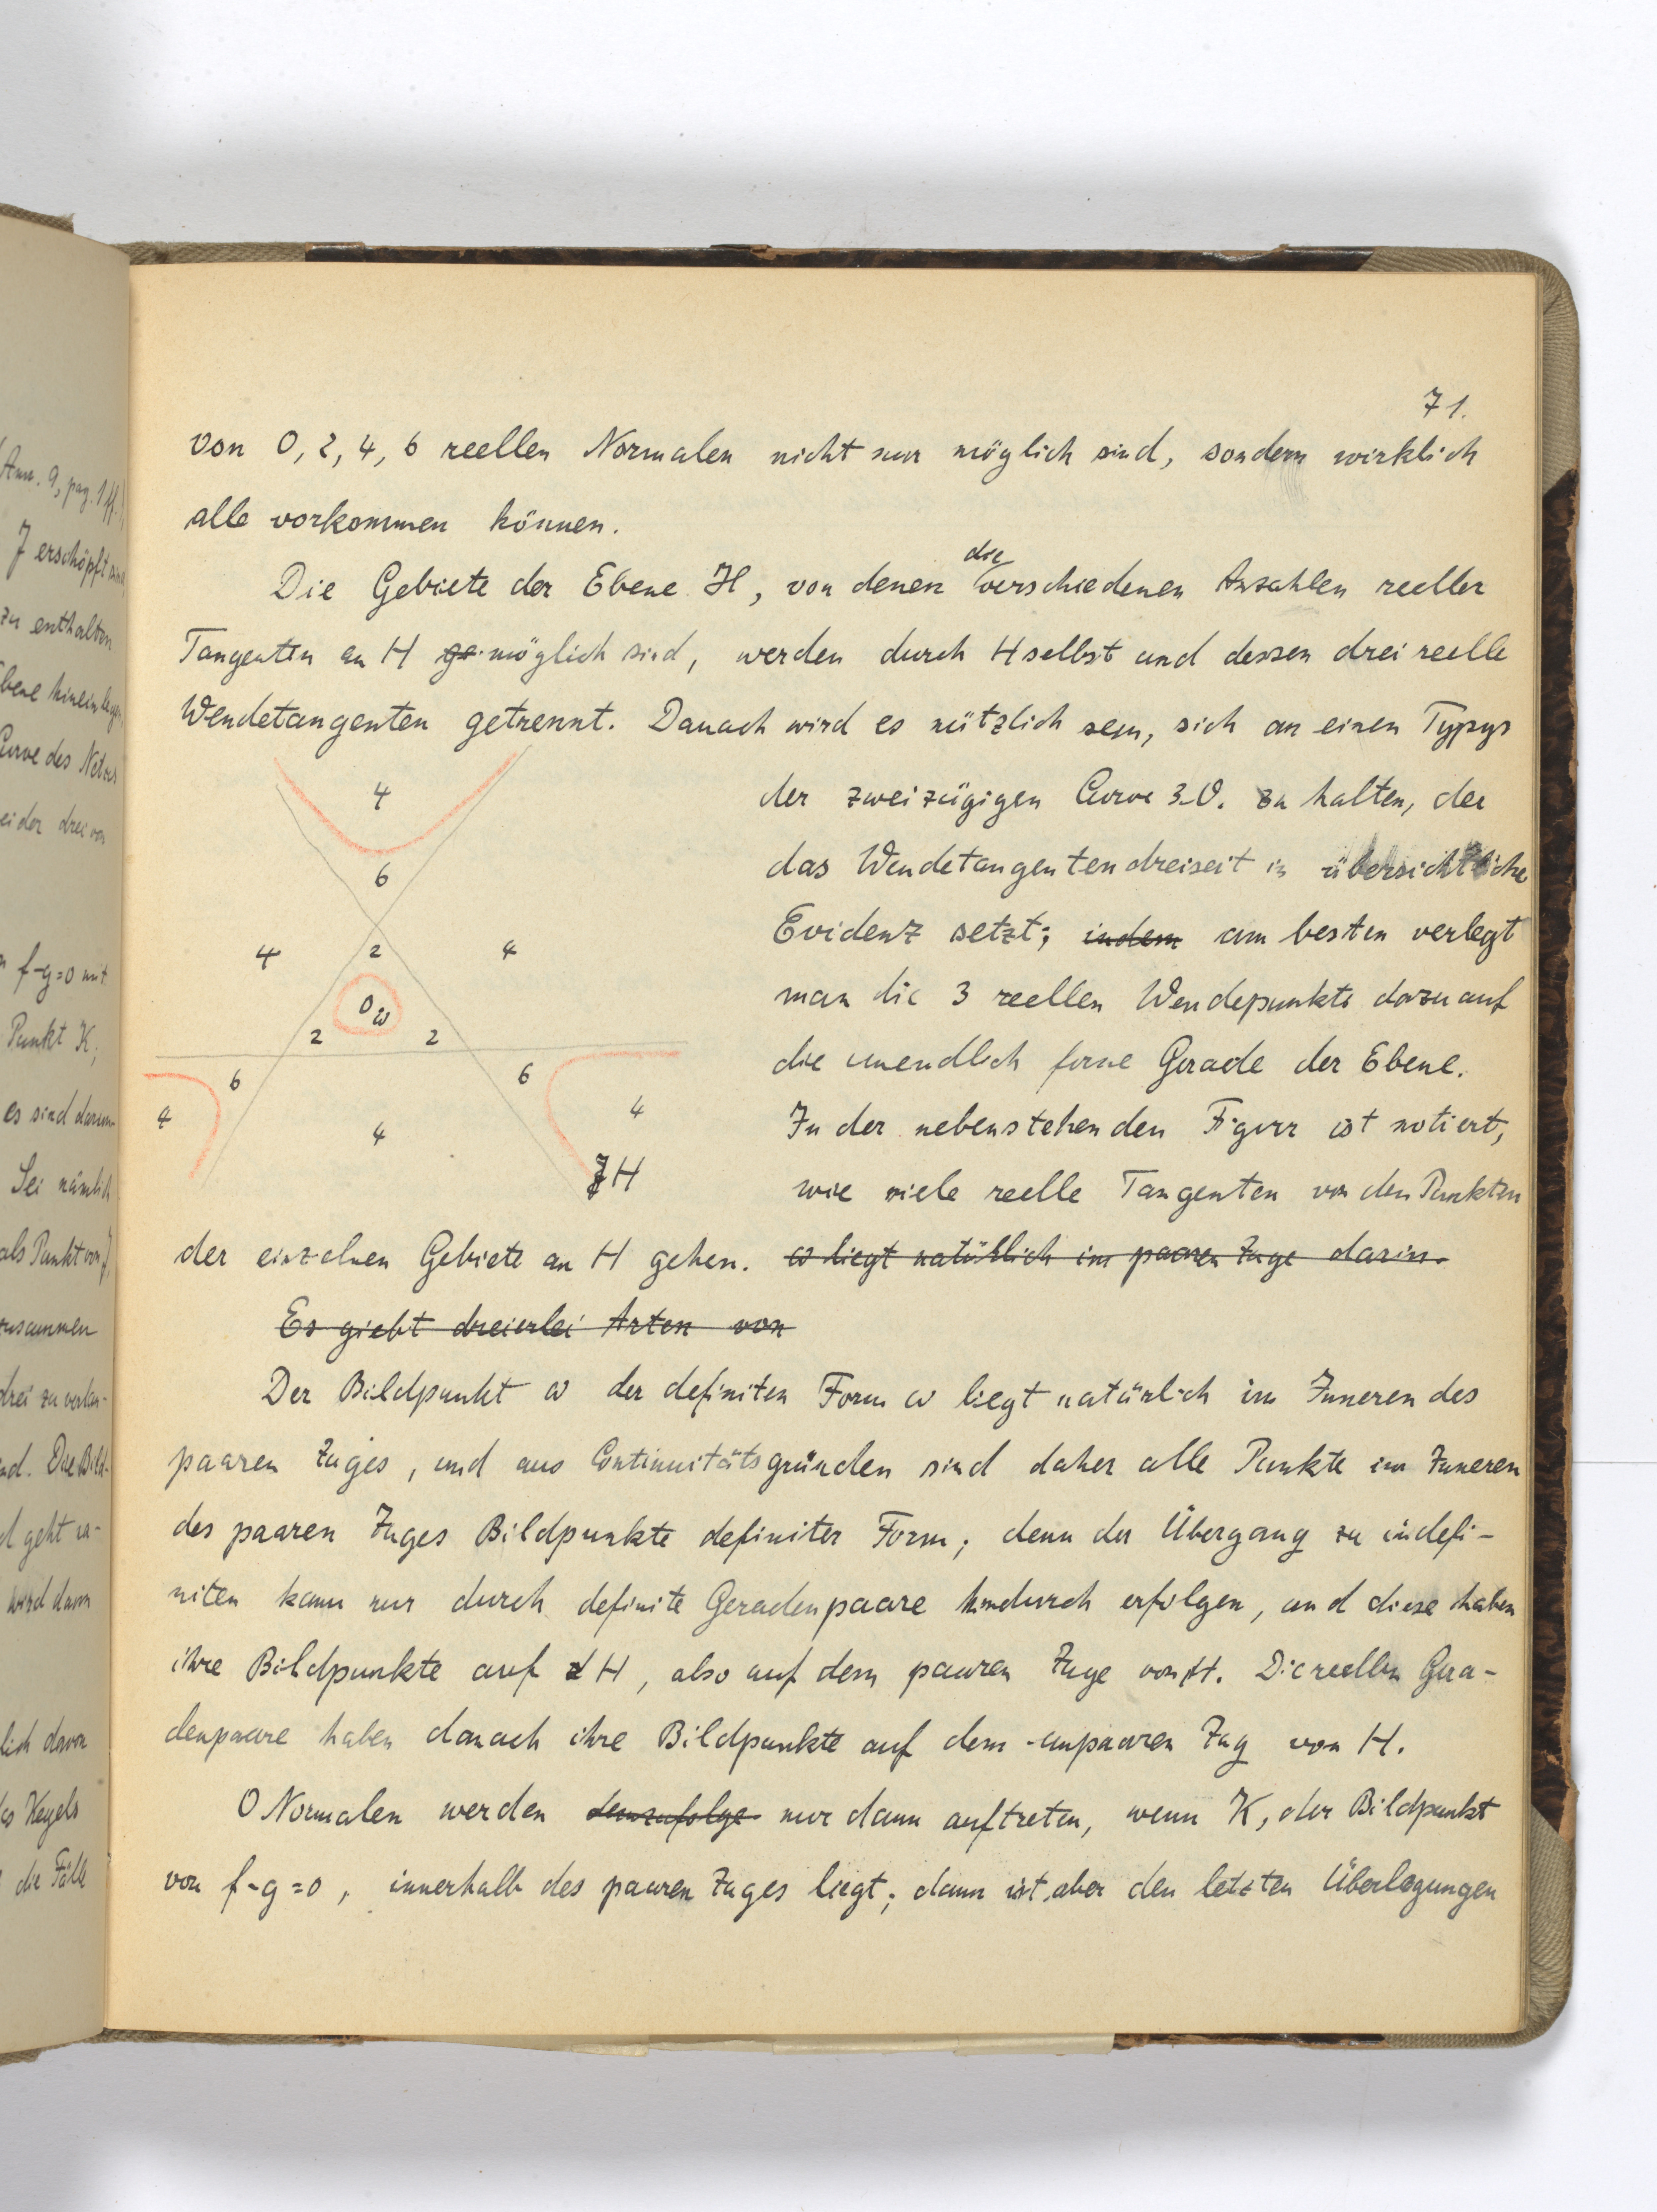 71.
von 0, 2, 4, 6 reellen Normalen nicht nur möglich sind, sondern wirklich
alle vorkommen können.
Die Gebiete der Ebene H, von denen die verschiedenen Anzahlen reeller
Tangenten an H ge möglich sind, werden durch H selbst und dessen drei reelle
Wendetangenten getrennt. Danach wird es nützlich sein, sich an einen Typus
der zweizügigen Curve 3.O. zu halten, der
das Wendetangentendreiseit in übersichtliche
Evidenz setzt; indem am besten verlegt
man die 3 reellen Wendepunkte dazu auf
die unendlich ferne Gerade der Ebene.
In der nebenstehenden Figur ist notiert,
wie viele reelle Tangenten von den Punkten
4
6
4
2
4
0
ω
2
2
6
6
4
4
4
H
der einzelnen Gebiete an H gehen. ω liegt natürlich im paaren Zuge darin.
Es giebt dreierlei Arten von
Der Bildpunkt ω der definiten Form ω liegt natürlich im Inneren des
paaren Zuges, und aus Continuitätsgründen sind daher alle Punkte im Inneren
des paaren Zuges Bildpunkte definiter Form; denn der Übergang zu indefi-
niten kann nur durch definite Geradenpaare hindurch erfolgen, und diese haben
ihre Bildpunkte auf H, also auf dem paaren Zuge von H. Die reellen Gera-
denpaare haben danach ihre Bildpunkte auf dem unpaaren Zug von H.
0 Normalen werden demzufolge nur dann auftreten, wenn K, der Bildpunkt
von f-g=0, innerhalb des paaren Zuges liegt; dann ist aber den letzten Überlegungen
Ann. 9, pag. 1 ff.
J erschöpft
zu enthalten
Curve des Netzes
ei der drei von
f-g=0 mit
Punkt K;
es sind darum
Sei nämlich
als Punkt von J
zusammen
drei zu verlan-
nd. Die Bild-
d geht ra-
wird dann
lich davon
des Kegels
die Fälle